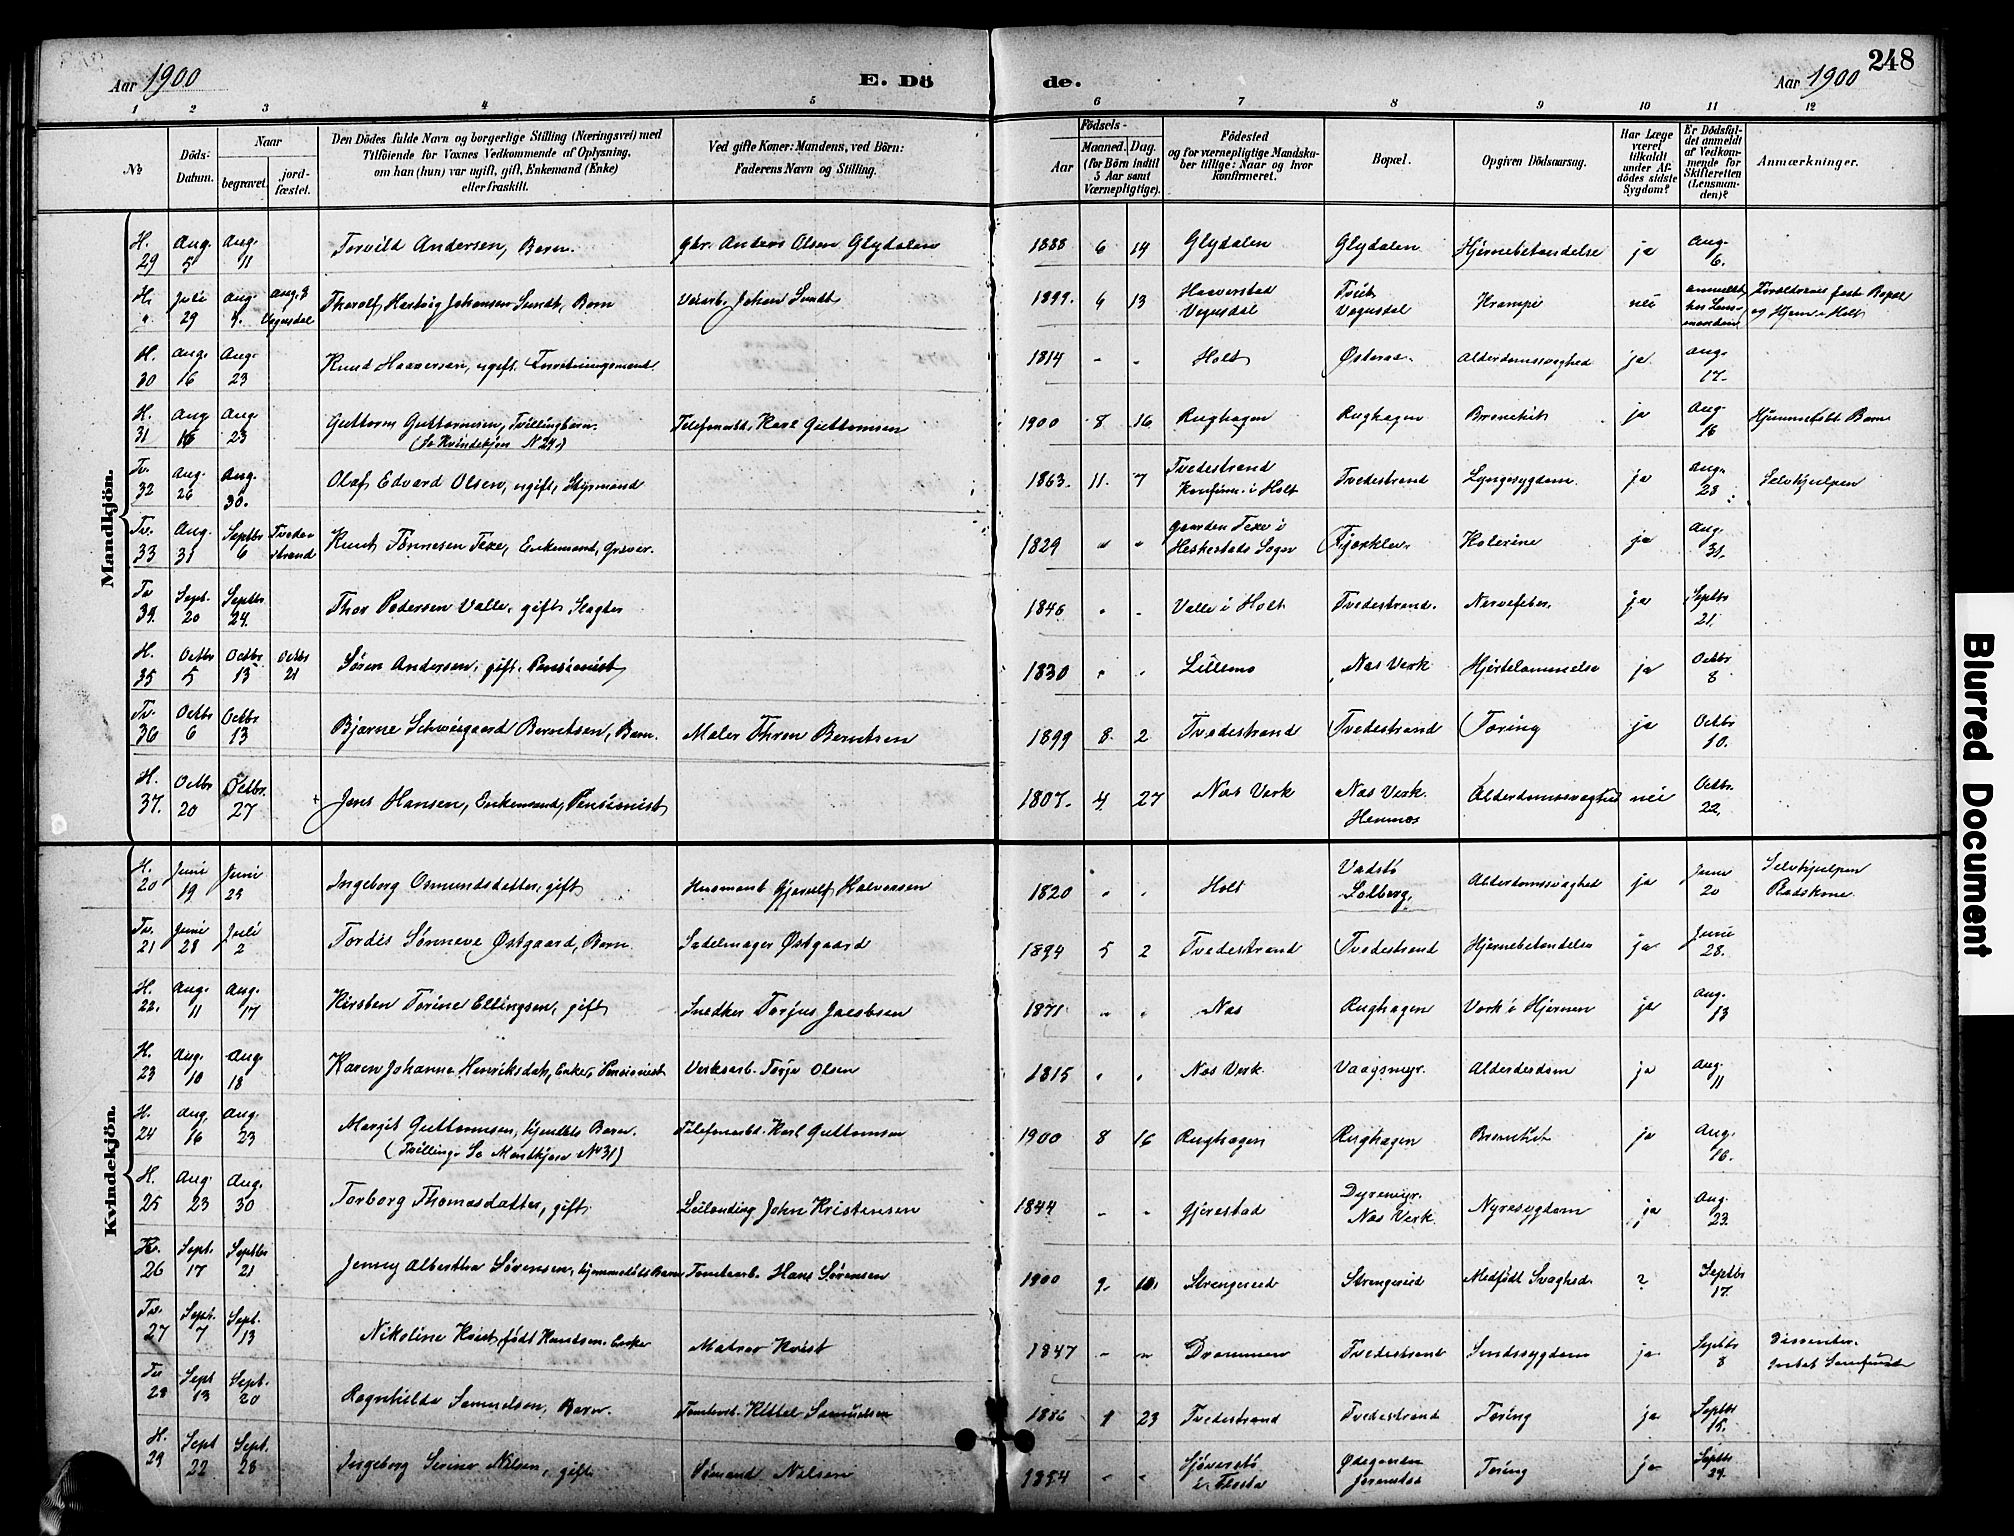 248
Aar 1900
E. Dö
de.
Aar 1900
1 2 3 4 5 6 7 8 9 10 11 12
No
Döds-Datum.
Naar
begravet.
jord-fæstet.
Den Dödes fulde Navn og borgerlige Stilling (Næringsvei) med
Tilföiende for Voxnes Vedkommende af Oplysning,
om han (hun) var ugift, gift, Enkemand (Enke)
eller fraskilt.
Ved gifte Koner: Mandens, ved Börn:
Faderens Navn og Stilling.
Födsels-
Aar
Maaned. Dag.
(for Börn indtil
5 Aar samt
Værnepligtige).
Födested
og for værnepligtige Mandska-
ber tillige: Naar og hvor
konfirmeret.
Bopæl.
Opgiven Dödsaarsag.
Har Læge
været
tilkaldt
under Af-
dödes sidste
Sygdom?
Er Dödsfal-
det anmeldt
af Vedkom-
mende for
Skifteretten
(Lensman-
den)?
Anmærkninger.
Mandkjön.
H. 29 Aug. 5 Aug. 11 Torvild Andersen, Barn. Gbr. Anders Olsen Glydalen 1888 6 14 Glydalen Glydalen Hjernebetændelse ja Aug. 6.
H. " Juli 29 Aug. 4. Aug. 8 Vegusdal Tharalf Hartvig Johansen Sundt, Barn Johan Sundt 1899. 6 13 Haaverstad Vegusdal Vegusdal Krampe nei anmeldt hos Lensmanden Forældrenes faste Bopæl og Hjem i Holt
H. 30 Aug. 16 Aug. 23 Knud Haaversen, ugift, 1814 - " Holt Østeraa. Alderdomssvaghed ja. Aug. 17.
H. 31 Aug. 16 Aug. 23 Guttorm Guttormsen, Tvillingbarn. Telefonarbd. Karl Guttormsen 1900 8 16 Rughagen Rughagen ja Aug. 16 Hjemmedøbt Barn
(Se Kvindekjøn N 24.)
Tv. 32 Aug. 26 Aug. 30. Olaf Edvard Olsen, ugift, Styrmand 1863. 11. 7 Tvedestrand Konfirm. i Holt Tvedestrand Lungesygdom. ja Aug. 28 Selvhjulpen
Tv. 33 Aug. 31 Septbr 6 Tvedestrand Knut Tønnesen Texe, Enkemand, Graver. 1829 " " Gaarden Texe i Heskestads Sogn Fjærkleiv Kolerine ja Aug. 31.
Tv 34. Sept. 20 Septbr 24. Thor Pedersen Valle, gift, Slagter 1846 " - Valle i Holt Tvedestrand. Nervefeber. ja Septbr 21.
H. 35 Octbr 5 Octbr 13 Octbr 21 Søren Andersen, gift, Pensionist 1830 " " Lillemo Næs Verk Hjertelammelse ja Octbr 8
Tv. 36 Octbr 6 Octbr 13 Bjarne Schweigaard Berntsen, Barn. Maler Thron Berntsen 1899 8. 2 Tvedestrand Tvedestrand Tæring ja Octbr 10.
H. 37. Octbr 20 Octbr. 27 Jens Hansen, Enkemand, Pensionist 1807. 4. 27 Næs Verk Næs Verk. Henmoes Alderdomssvaghed nei Octbr. 22.
Kvindekjön.
H. 20 Juni 19 Juni 23 Ingeborg Osmundsdatter, gift Husmand Gjerulf Halvorsen 1820 " " Holt Vadstø Solberg. Alderdomssvaghed ja Juni 20 Selvhjulpen
Tv. 21 Juni 28 Juli 2 Tordis Sønneve Østgaard, Barn. Sadelmager Østgaard 1894 5 2 Tvedestrand Tvedestrand Hjernebetændelse ja Juni 28.
H. 22. Aug. 11 Aug. 17 Kirsten Torine Ellingsen, gift Snedker Torjus Jacobsen 1871. " " Næs Rughagen Verk i Hjernen ja Aug. 13
H. 23 Aug. 10 Aug. 18 Karen Johanne Henriksdatt., Enke, Pensionist Verksarb. Terje Olsen 1815 " " Næs Verk. Vaagsmyr. Alderdom ja Aug. 11
H. 24 Aug. 16 Aug. 23 Margit Guttormsen, hjemdøbt Barn. Telefonarbd. Karl Guttormsen 1900 8 16 Rughagen Rughagen ja Aug. 16.
(Tvilling. Se Mandkjøn No 31)
H. 25 Aug. 23 Aug. 30 Torborg Thomasdatter, gift Leilending John Kristensen 1844 - " Gjerestad Dyremyr. Næs Verk. Nyresygdom ja Aug. 23.
26 Sept. 17 Septbr 21 Jenny Albertha Sørensen, hjemmedøbt Barn Tomtearb. Hans Sørensen 1900 9. 10. Strengereid Strengereid Medfødt Svaghed ? Septbr 17.
Tv. 27 Sept. 7 Sept. 13 Nikoline Kvist, født Knutsen, Enke Matros Kvist 1847 - " Drammen Tvedestrand Sindssygdom ja Septbr 8 Dissenter.
Tv 28 Sept 13 Sept. 20 Ragnhilda Samuelsen, Barn. Tomtearb. Kittel Samuelsen 1886 1 23 Tvedestrand Tvedestrand Tæring ja Septbr 15.
H. 29 Sept 22 Sept. 28 Ingeborg Serine Nilsen, gift Sømand Nilsen 1854 - " i Flosta Ødegaarden Tæring ja Septbr 24.
Blurred Document